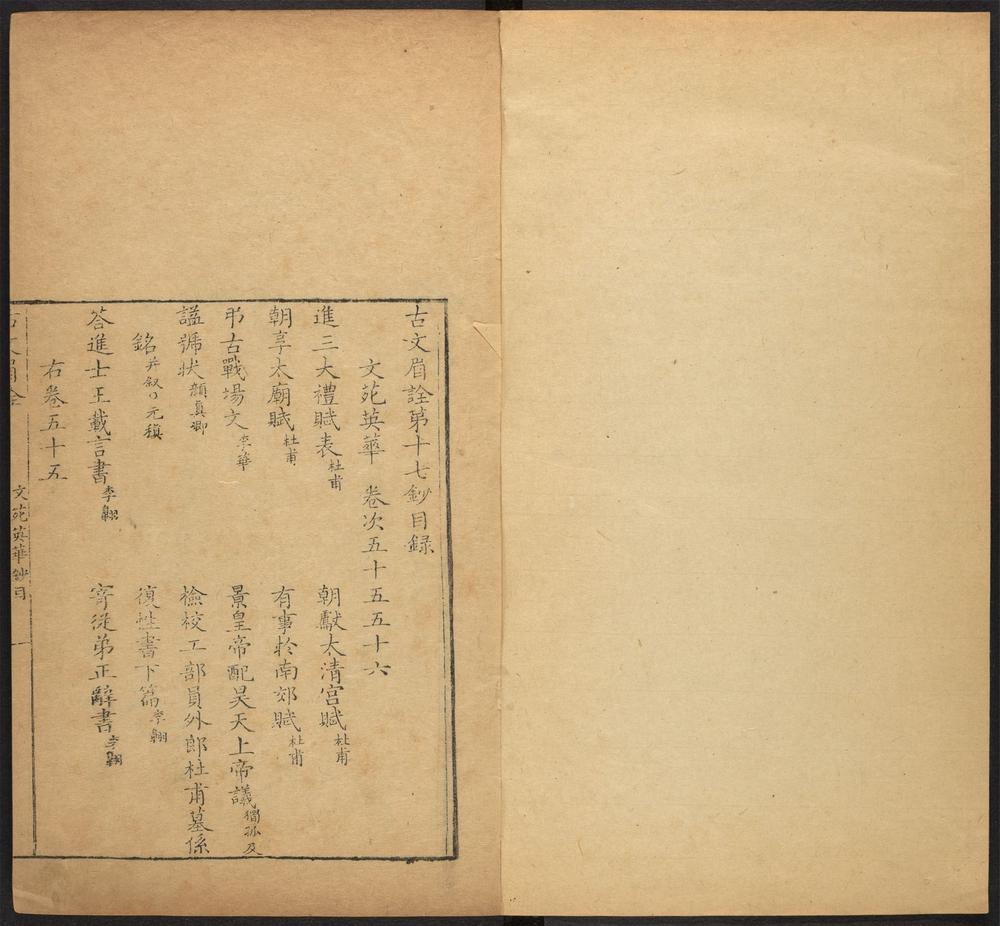 古文眉詮第十七鈔目録
文苑英華 卷次五十五五十六
進三大禮賦表 杜甫 朝獻太清宫賦 杜甫
朝享太廟賦 杜甫 有事於南郊賦 杜甫
弔古戰場文 李華 景皇帝配昊天上帝議 獨孤及
諡號狀 顏真卿 檢校工部員外郎杜甫墓係
銘 并叙 元稹 復性書下篇 李翱
荅進士王載言書 李翱 寄從弟正辭書 李翱
右卷五十五
文苑英華鈔目 一